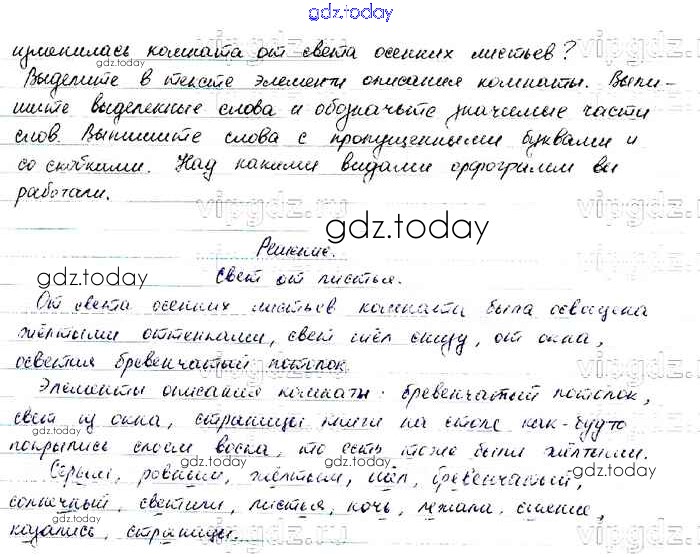 gdz.today
изменилась комната от света осенних листьев?
Выделите в тексте элементы описания комнаты. Выпи-
шите выделенные слова и обозначьте значимые части
слов. Выпишите слова с пропущенными буквами и
со скобками. Над какими видами орфограмм вы
работали.
gdz.today
Решение.
gdz.today
Свет от листьев.
От света осенних листьев комната была освещена
жёлтыми оттенками, свет шёл снизу, от окна,
осветив бревенчатый потолок
Элементы описания комнаты: бревенчатый потолок,
свет из окна, страницы книги на столе как-будто
покрылись слоем воска, то есть тоже были жёлтыми.
Серым, ровным, жёлтым, шёл, бревенчатый,
солнечный, светили, листья, ночь, лежала, сияние,
казались, страницы.